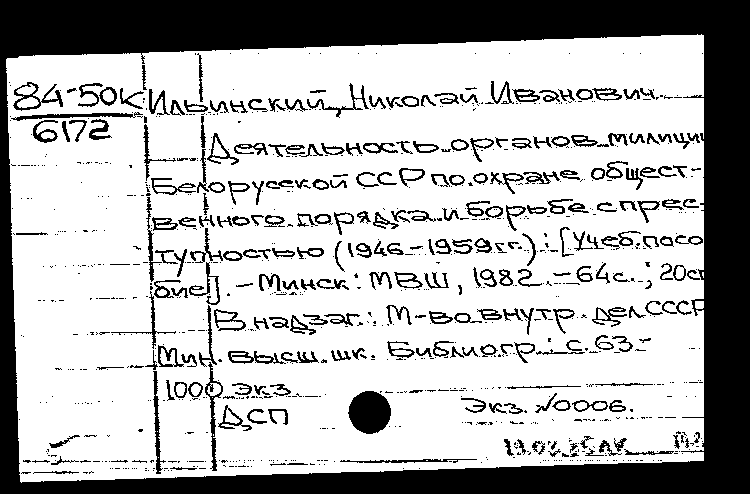 84-50К Ильинский, Николай Иванович.
6172
Деятельность органов милиции
Белорусской ССР по охране общест-
венного порядка и борьбе с прес-
тупностью (1946-1959гг.) : [Учеб. посо
бие]. - Минск : МВШ, 1982. - 64с. ; 20см
В надзаг.: М-во внутр. дел СССР
Мин. высш. шк. Библиогр.: с. 63-
1000 экз
ДСП
Экз. №0006.
5